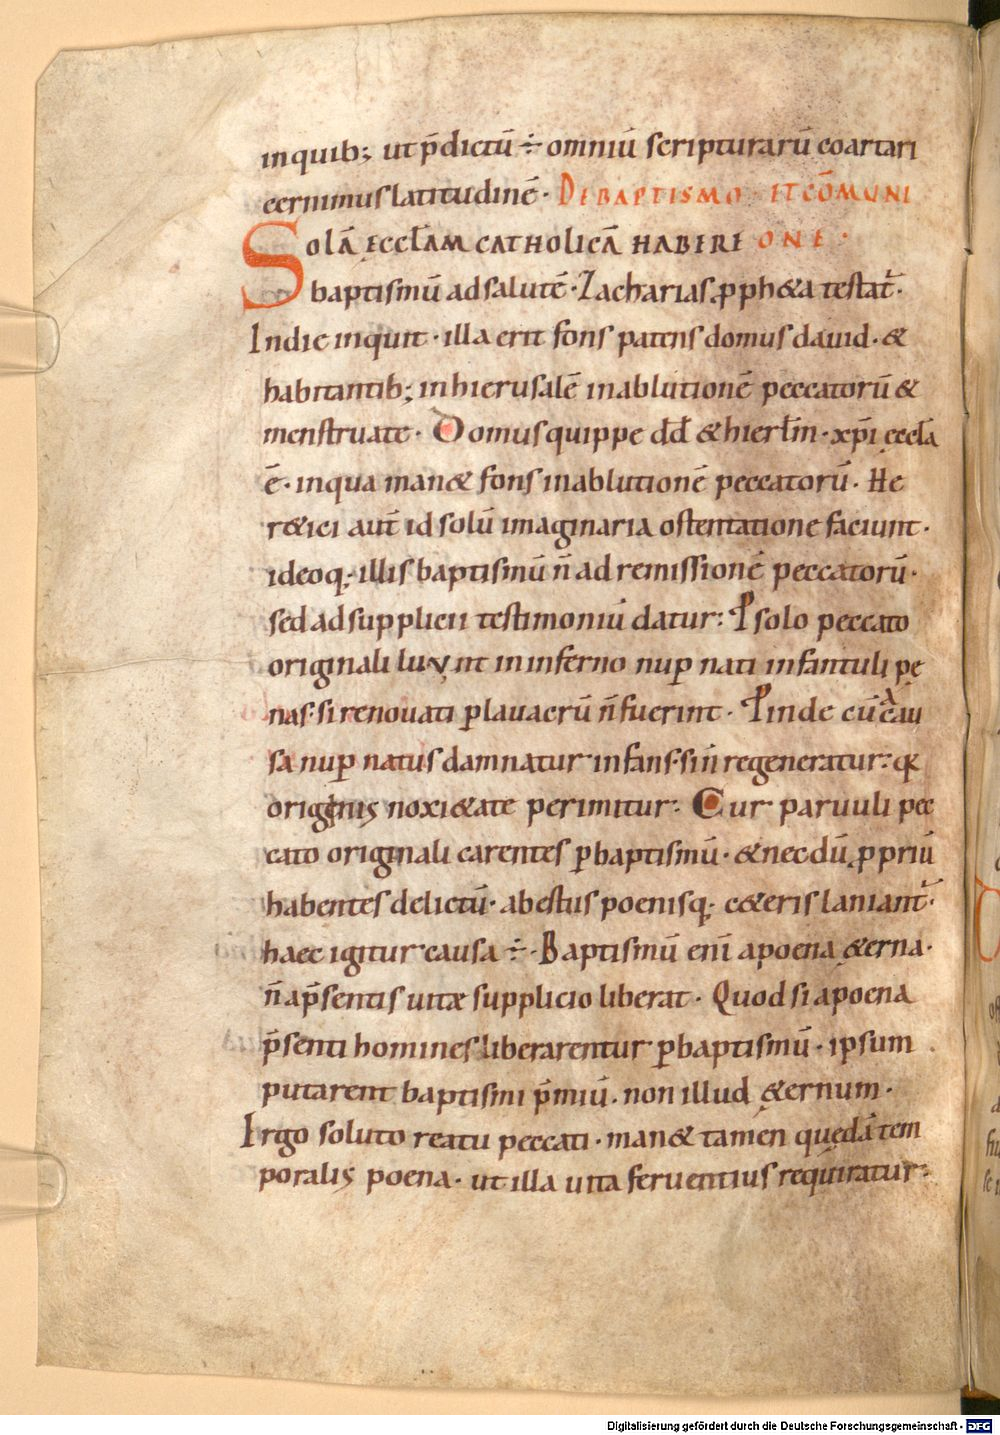 inquib; ut p̄dictū ÷ omniū scripturarū coartari
cernimus latitudinē · DE BAPTISMO · ET CŌMUNI
Solā ęccłam catholicā habere ONE ·
baptismū ad salutē · Zacharias ꝓph&a testat᷑ ·
In die inquit · illa erit fons patens domus dauid · &
habitantib; in hierusalē in ablutionē peccatorū &
menstruate · Domus quippe dđ & hierłm · xp̄i ęccła
ē · in qua man& fons in ablutionē peccatorū · He
r&ici aut̄ id solū imaginaria ostentatione faciunt ·
ideoq; illis baptismū n̄ ad remissionē peccatorū ·
sed ad supplicii testimoniū datur : P solo peccato
originali luunt in inferno nuꝑ nati infantuli pę
nas · si renouati ꝑ lauacrū n̄ fuerint · Pinde cū cau
sa nuꝑ natus damnatur infans · si n̄ regeneratur : q̄
originis noxi&ate perimitur : Cur paruuli pec
cato originali carentes ꝑ baptismū · & necdū ꝓpriū
habentes delictū · a bestiis poenisq; c&eris laniant᷑ ·
haec igitur causa ÷ · Baptismū enī a poena &erna ·
n̄ a p̄sentis uitæ supplicio liberat · Quod si a poena
p̄senti homines liberarentur ꝑ baptismū · ipsum
putarent baptismi p̄miū · non illud &ernum ·
Ergo soluto reatu peccati · man& tamen quędā tem
poralis poena · ut illa uita feruentius requiratur :
Digitalisierung gefördert durch die Deutsche Forschungsgemeinschaft - DFG